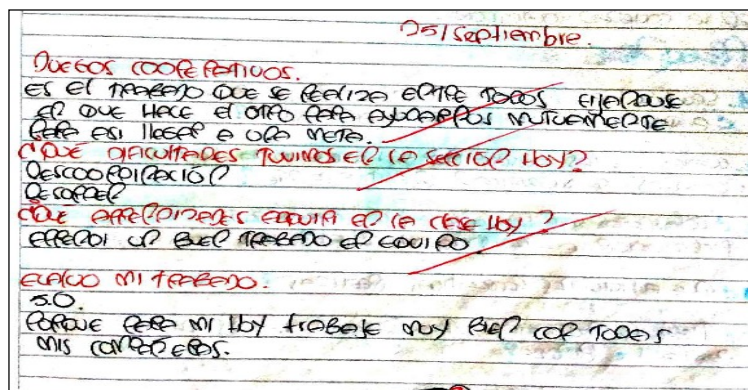 25/septiembre.
JUEGOS COOPERATIVOS.
ES El TRABAJO QUE SE REALIZA ENTRE TODOS FIJARNOS
EN QUE HACE El OTRO PARA AYUDARNOS MUTUAMENTE
PARA ASI llEGAR A UNA META.
¿QUE DIFICULTADES TUVIMOS EN LA SECCION HOY?
DESCOORDINACION
DESORDEN
¿QUE APRENDIZAJES ADQUIRI EN LA CLASE HOY?
APRENDI UN BUEN TRABAJO EN EQUIPO.
EVALUO MI TRABAJO.
5.0.
PORQUE PARA MI HOY TRABAJE MUY BIEN CON TODOS
MIS COMPAÑEROS.